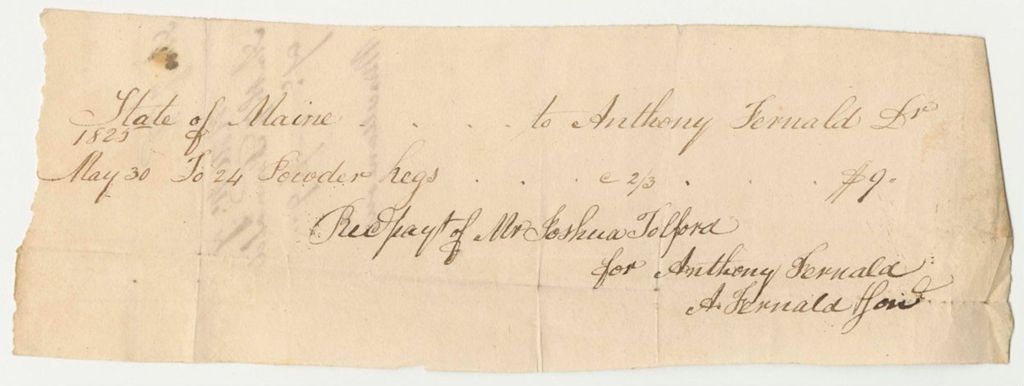 State of Maine . . . . to Anthony Fernald Dr
1825
May 30 To 24 Powder kegs . . . @ 2/3 . . . $9.
Recd payt of Mr Joshua Tolford
for Anthony Fernald
A. Fernald